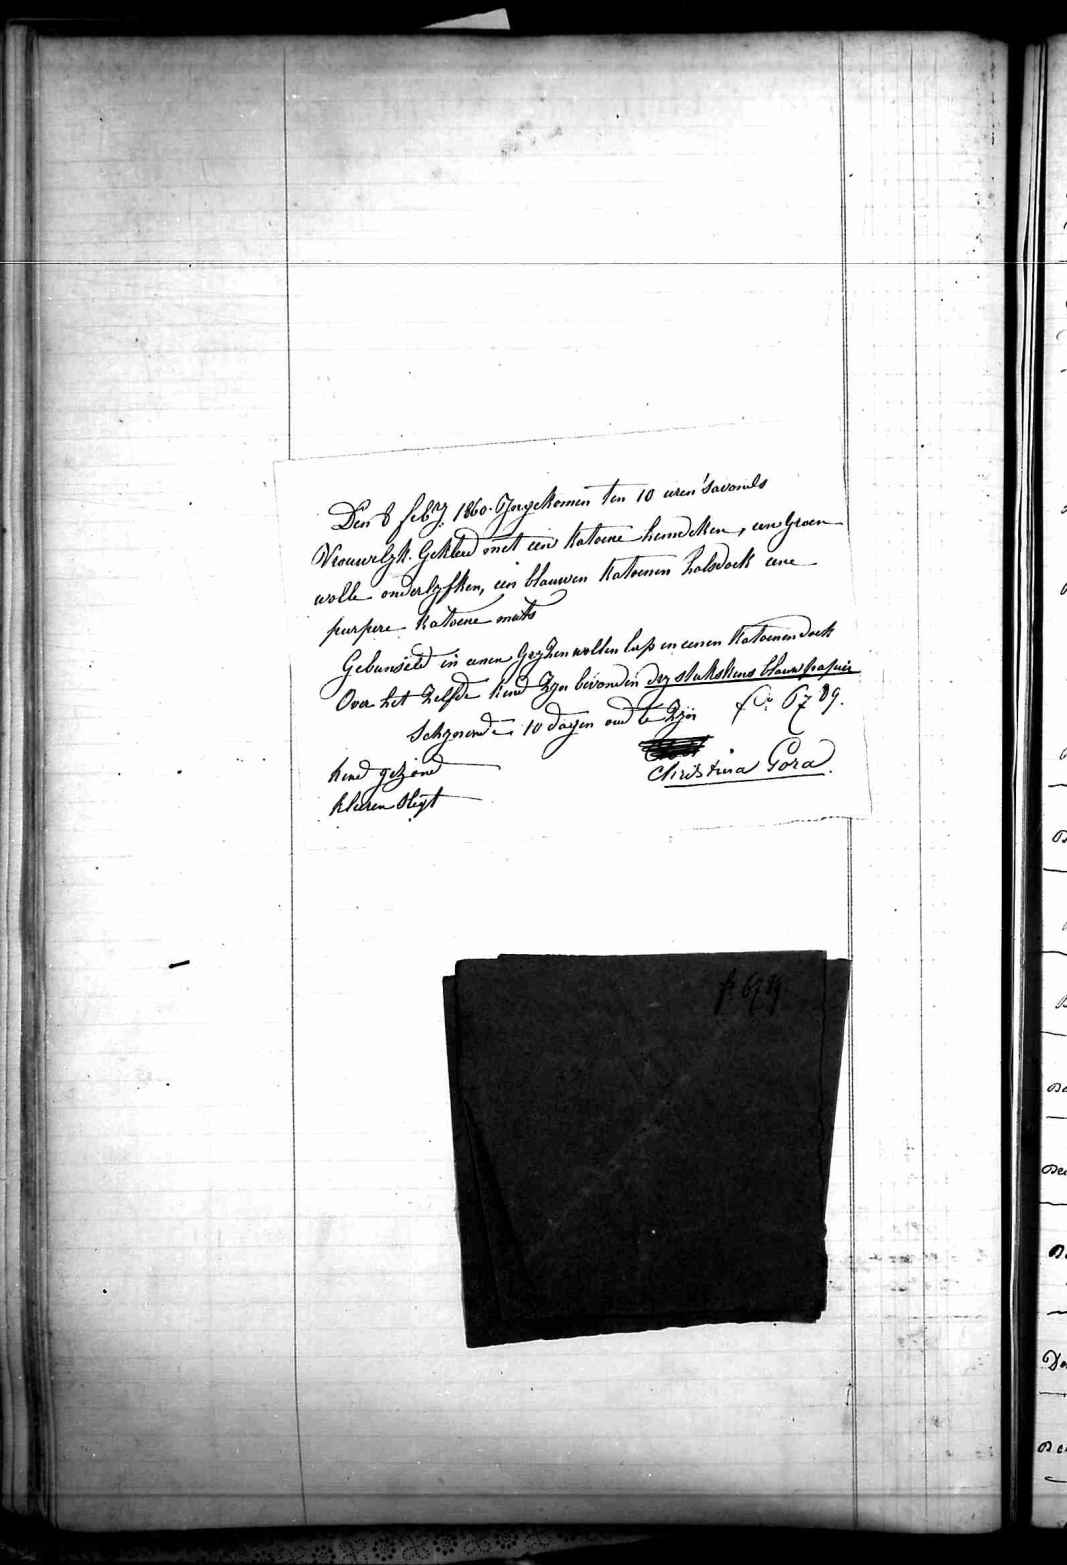 Den 8 feb.y 1860. Ingekomen ten 10 uren 'savonds
Vrouwelyk. Gekleed met een katoene hemdeken, een Groen
wolle onderlyfken, een blauwen katoenen halsdoek eene
purpere katoene muts
Gebunseld in eenen Gryzen wollen lap en eenen katoenen doek
Over het zelfde kind zyn bevonden dry stukskens blauw papier
Schynende 10 dagen oud te zyn fo. 6789.
kind gezond
Christina Gora.
kleeren slegt
fo. 6789